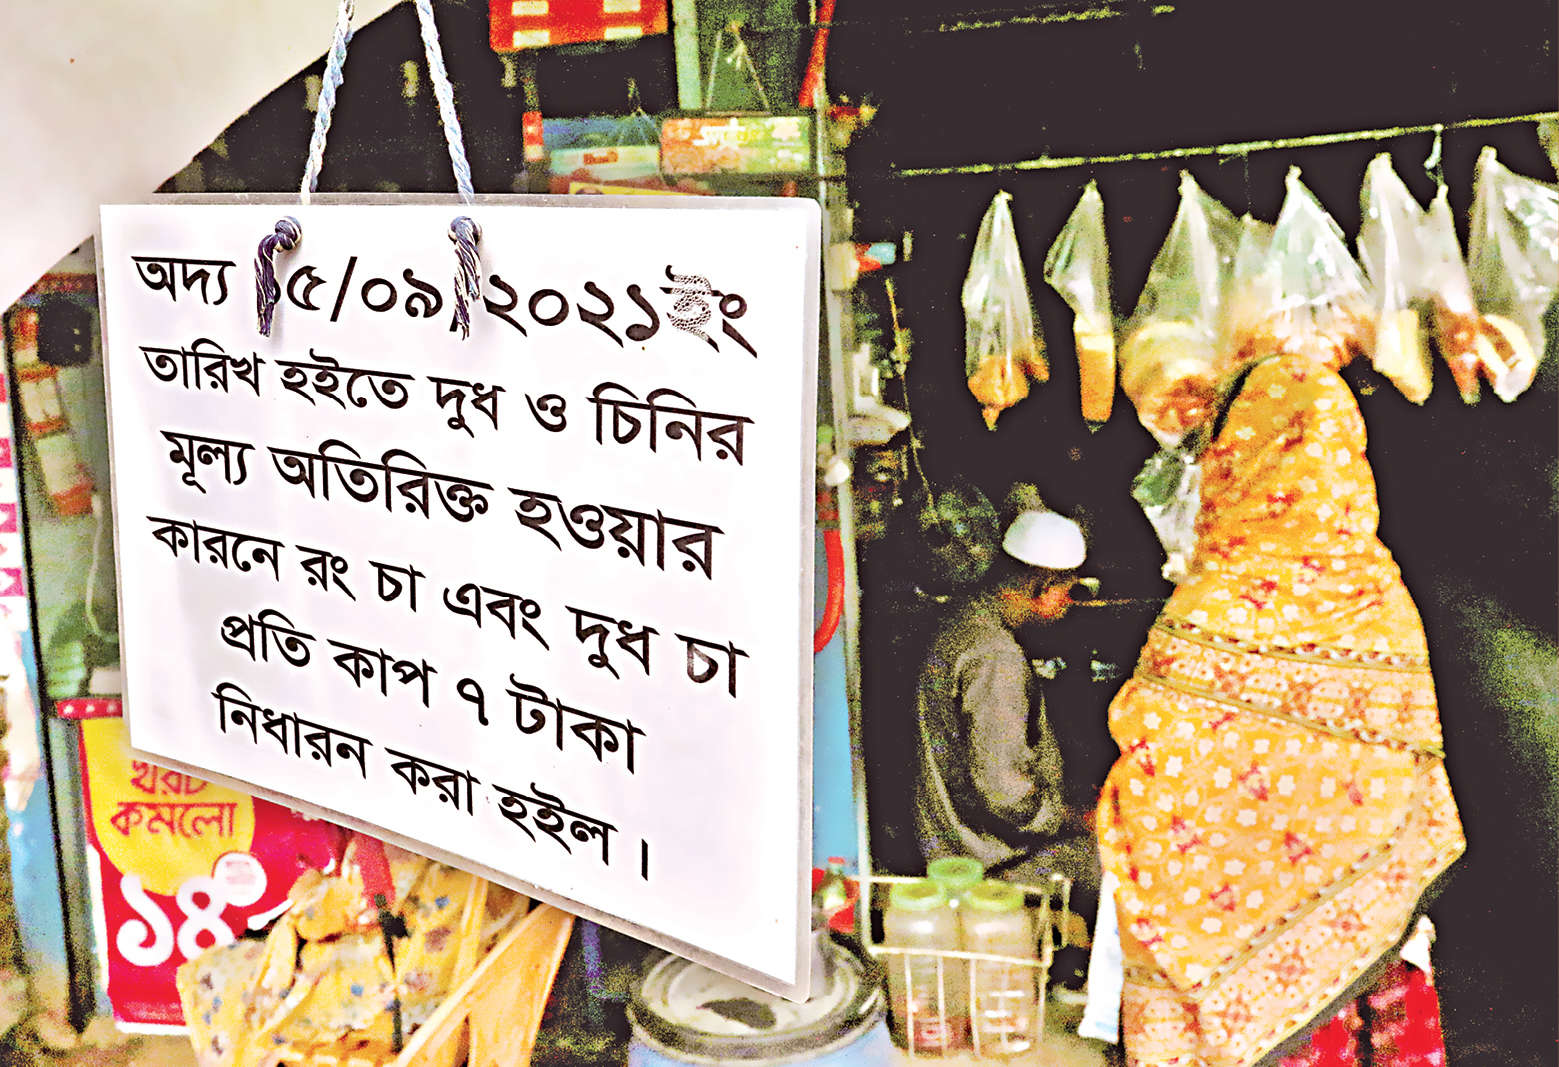 অদ্য ৫/০৯/২০২১ইং
তারিখ হইতে দুধ ও চিনির
মূল্য অতিরিক্ত হওয়ার
কারনে রং চা এবং দুধ চা
প্রতি কাপ ৭ টাকা
নিধারন করা হইল।
খরচ
কমলো
১৪